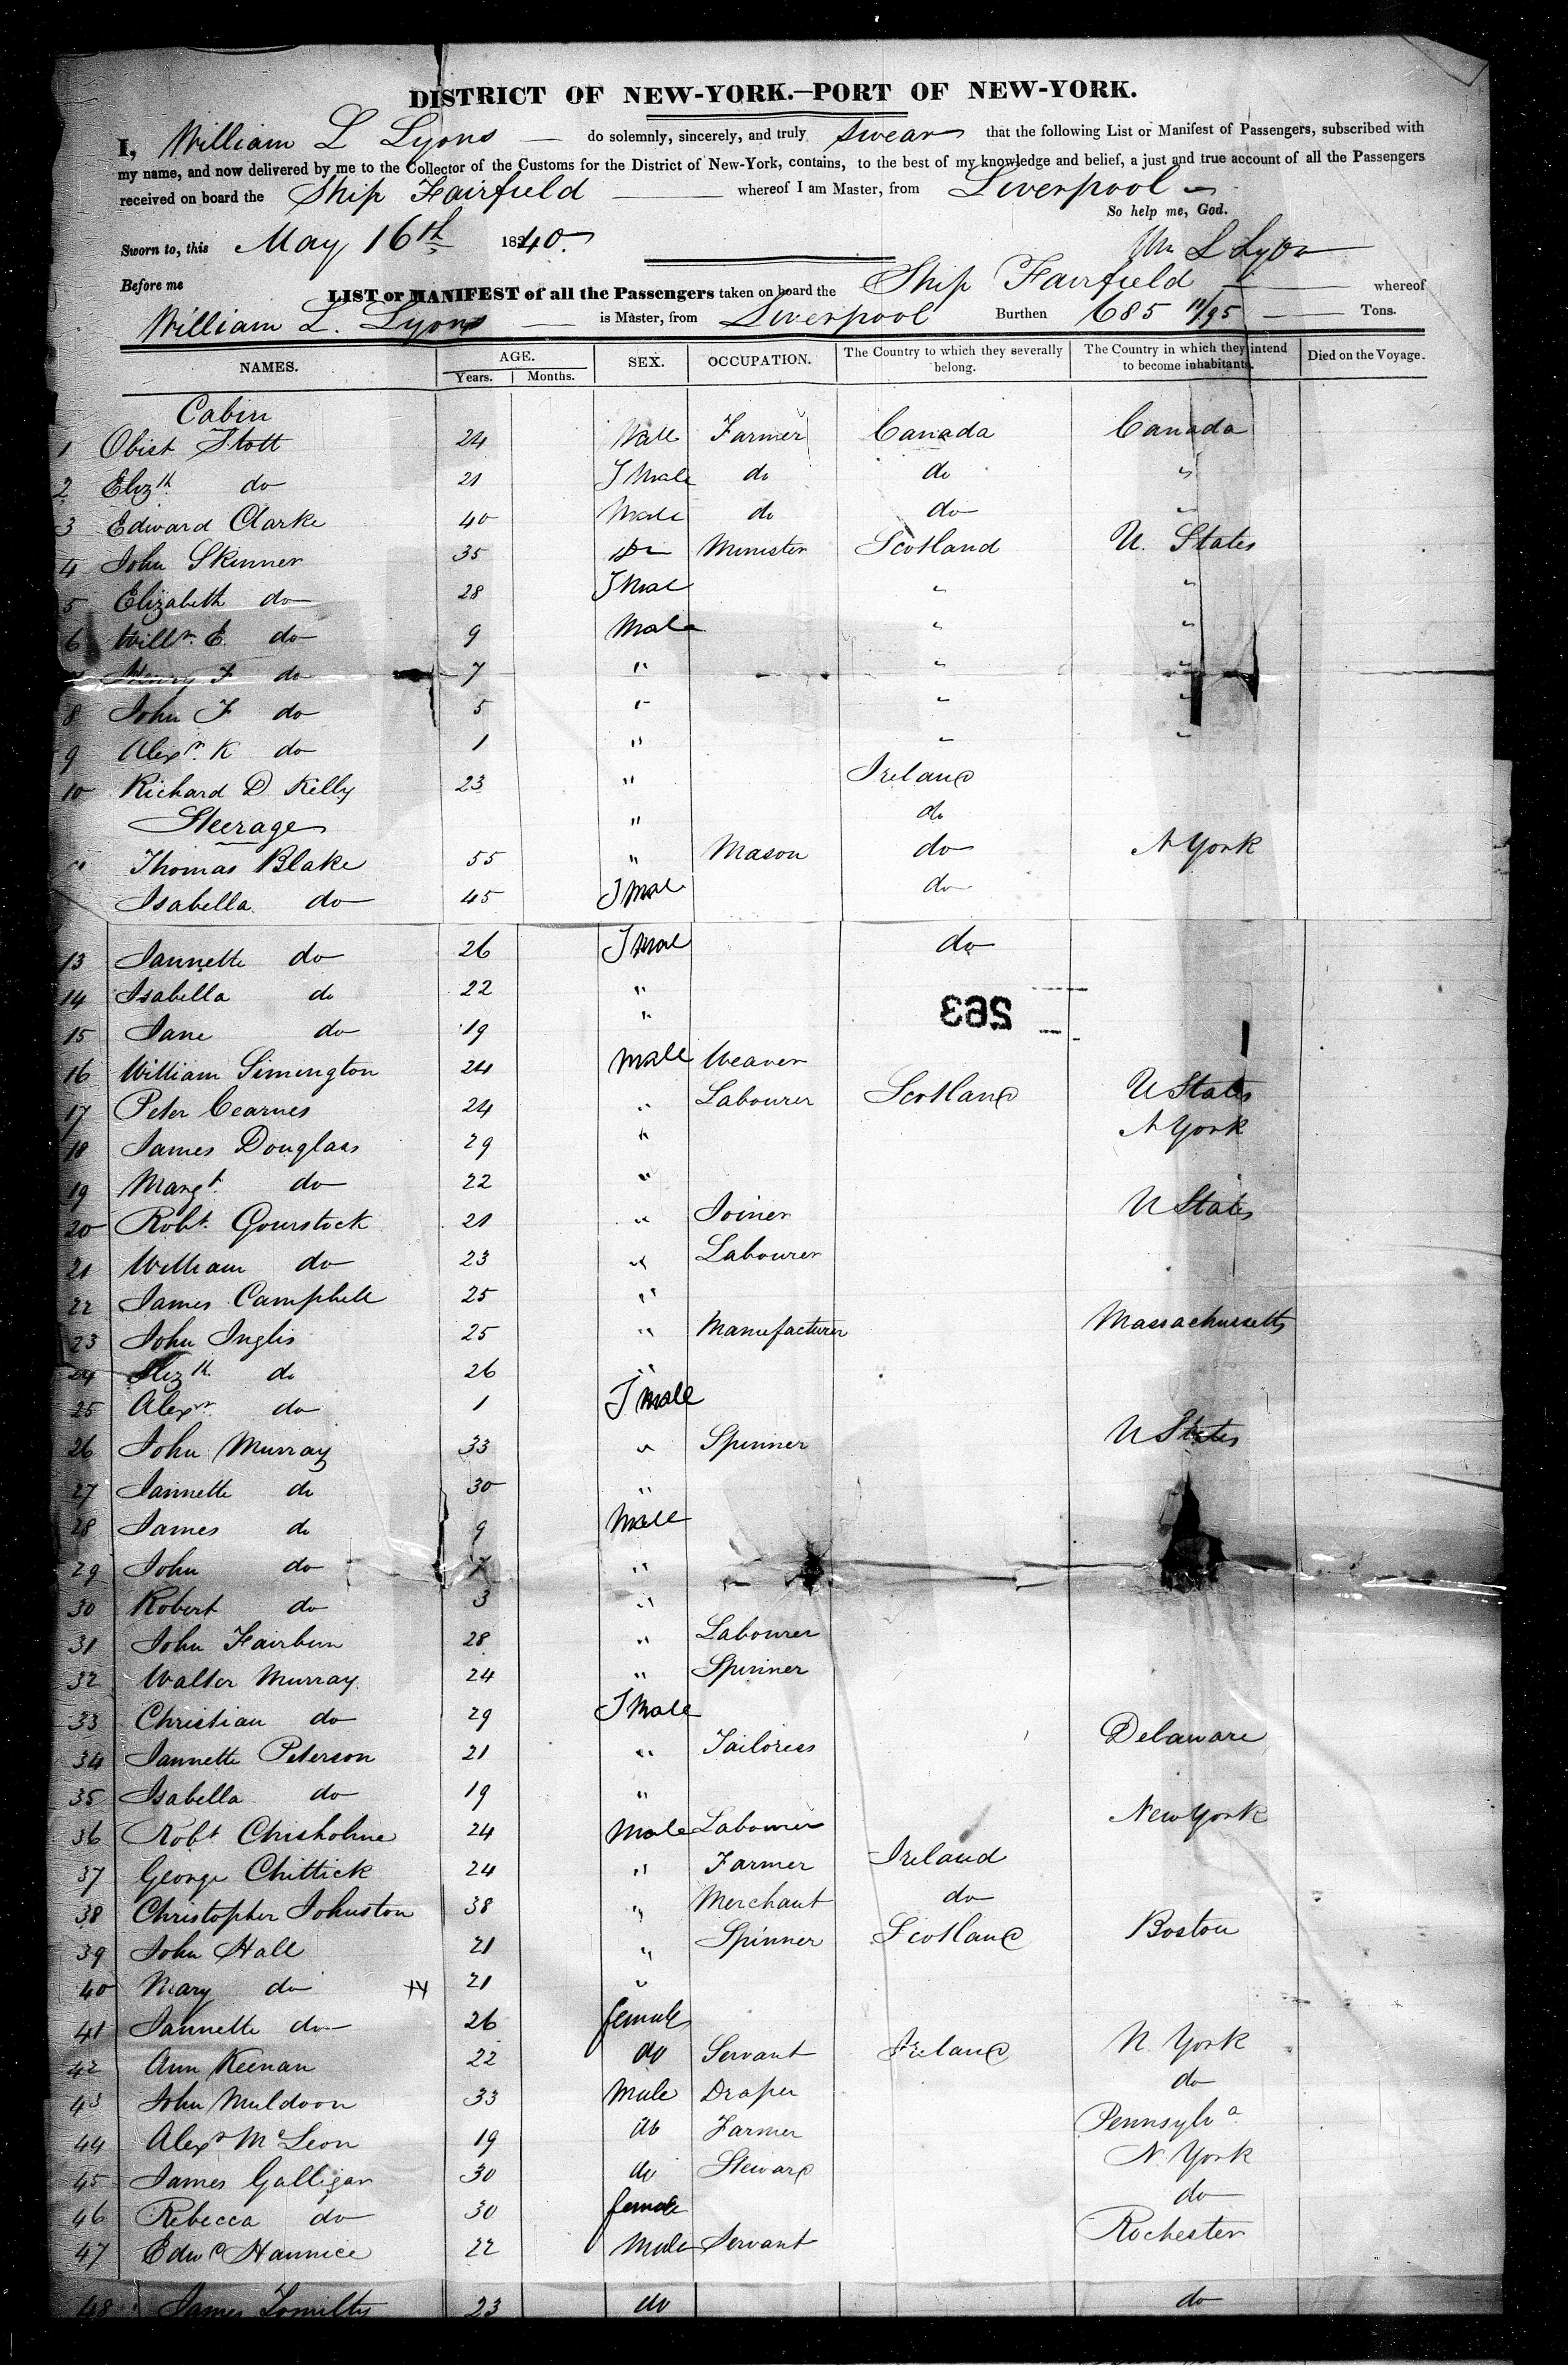 DISTRICT OF NEW-YORK.—PORT OF NEW-YORK.
I, William L Lyons — do solemnly, sincerely, and truly swear that the following List or Manifest of Passengers, subscribed with
my name, and now delivered by me to the Collector of the Customs for the District of New-York, contains, to the best of my knowledge and belief, a just and true account of all the Passengers
received on board the Ship Fairfield — whereof I am Master, from Liverpool
So help me, God.
Sworn to, this May 16th 1840.
Wm L Lyon
Before me
LIST or MANIFEST of all the Passengers taken on board the Ship Fairfield — whereof
William L. Lyons — is Master, from Liverpool Burthen 685 11/95 — Tons.
NAMES. AGE. Years. Months. SEX. OCCUPATION. The Country to which they severally belong. The Country in which they intend to become inhabitants. Died on the Voyage.
Cabin
1 Stott 24 Male Farmer Canada Canada
2 Elizth do 21 F Male do do "
3 Edward Clarke 40 Male do do "
4 John Skinner 35 do Minister Scotland U. States
5 Elizabeth do 28 F Mal " "
6 Willm E. do 9 Male " "
7 Henry F do 7 " " "
8 John F do 5 " " "
9 Alexr. K do 1 " " "
10 Richard D. Kelly 23 " Ireland
Steerage " do
" Thomas Blake 55 " Mason do N York
Isabella do 45 F Mal do
13 Jannette do 26 F Mal do
14 Isabella do 22 "
263
15 Jane do 19 "
16 William Simington 24 Male Weaver
17 Peter Cearnes 24 " Labourer Scotland U States
18 James Douglass 29 " N York
19 Margt. do 22 "
20 Robt. Gourstock 21 " Joiner U States
21 William do 23 " Labourer
22 James Campbell 25 "
23 John Inglis 25 " Manufacturer Massachussetts
24 Elizth do 26 "
25 Alexr. do 1 F Male
26 John Murray 33 " Spinner U States
27 Jannette do 30 "
28 James do 9 Male
29 John do 7 "
30 Robert do 3 "
31 John Fairburn 28 " Labourer
32 Walter Murray 24 " Spinner
33 Christian do 29 F Male
34 Jannette Peterson 21 " Tailoress Delaware
35 Isabella do 19 "
36 Robt Chisholme 24 Male Labourer New York
37 George Chittick 24 " Farmer Ireland
38 Christopher Johnston 38 " Merchant do
39 John Hall 21 " Spinner Scotland Boston
40 Mary do 21 "
41 Jannette do 26 female
42 Ann Keenan 22 do Servant Ireland N. York
43 John Muldoon 33 Male Draper do
44 Alexr McLeon 19 do Farmer Pennsylva
45 James Galligan 30 do Steward N. York
46 Rebecca do 30 female do
47 Edwd Hannice 22 Male Servant Rochester
48 James 23 do do